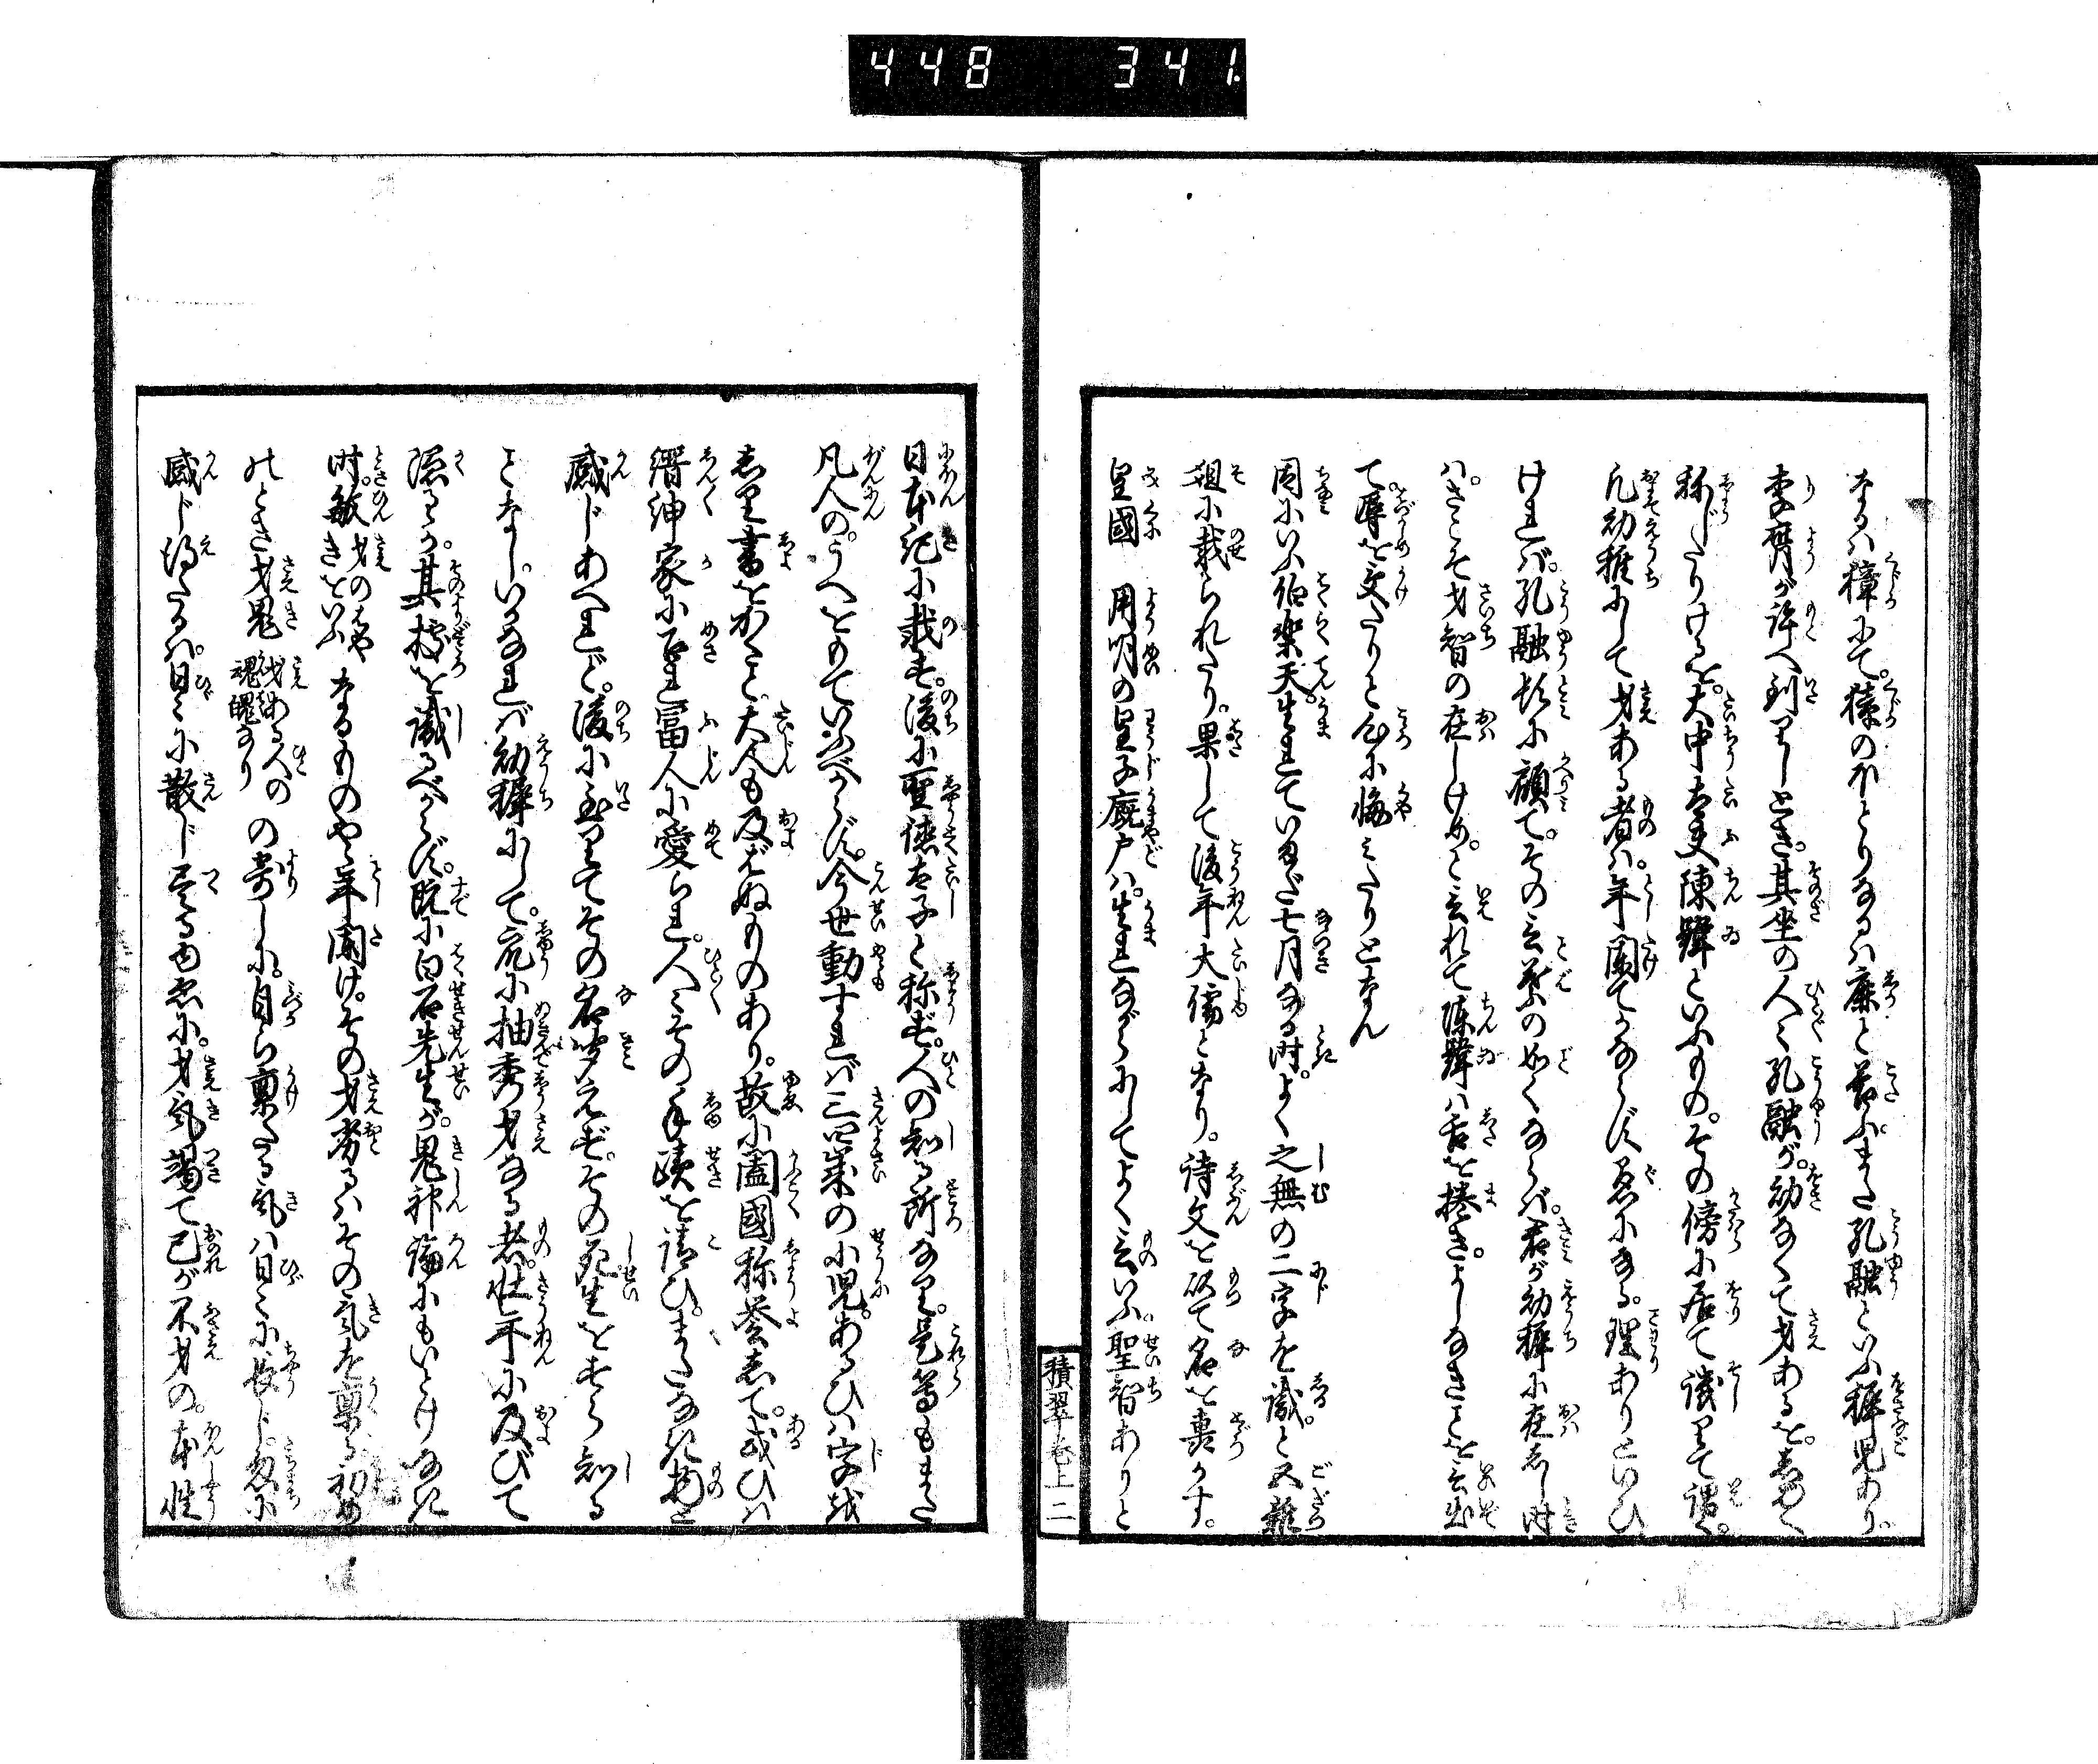 448 341
なるハ獐にて。獐のほとりなるハ麋と答ふまた孔融といふ穉児あり。
李膺が許へ到りしとき。其坐の人々孔融が。幼なくて才あるを。あやしく
称じたりけるを。大中太夫陳韙といふもの。その傍に居て譏りて謂く。
凡幼稚にして才ある者ハ。年闌てかならず愚になる。理ありといひ
けれバ。孔融忙に顧て。その言葉の如くならバ。君が幼穉に在しし時
ハ。さこそ才智の在しけめ。と云れて陳韙ハ舌を捲き。よしなきことを云出
て。辱を受たりと心に悔ミたりとなん
固にいふ伯楽天。生れていまだ七月なる時。よく之無の二字を識。と五雑
俎に載られたり。果して後年大儒となり。詩文を以て名を轟かす。
皇國 用明の皇子廐戸ハ。生れながらにしてよく言いふ。聖智ありと
積翠巻上 二
日本紀に載す。後に聖徳太子と称ず。人の知る所なり。是等もまた
凡人の。うへをもていふべからず。今世動すれバ三四歳の小児。あるひハ字を
志り書をかくこと。大人も及ばぬものあり。故に闔國称誉して。或ひハ
縉紳家に召れ冨人に愛られ。人々その手蹟を請ひ。またなき物と
感じあへれど。後に至りてその名聞えず。その死生をすら知る
ことなし。いかなれバ幼穉にして。衆に抽秀才なる者。壮年に及びて
隠るゝか。其據を識るべからず。既に白石先生が。鬼神論にもいとけなき
時。敏き才のはやきをいふ なるものや。年闌け。その才劣るハその気を稟る初め
のとき才鬼 才ある人の魂魄なり の寄しに。自ら稟たる気ハ日々に長じ。忽に
感じ得たるハ。日々に散じ尽るゆゑに。才気竭て己が不才の。本性